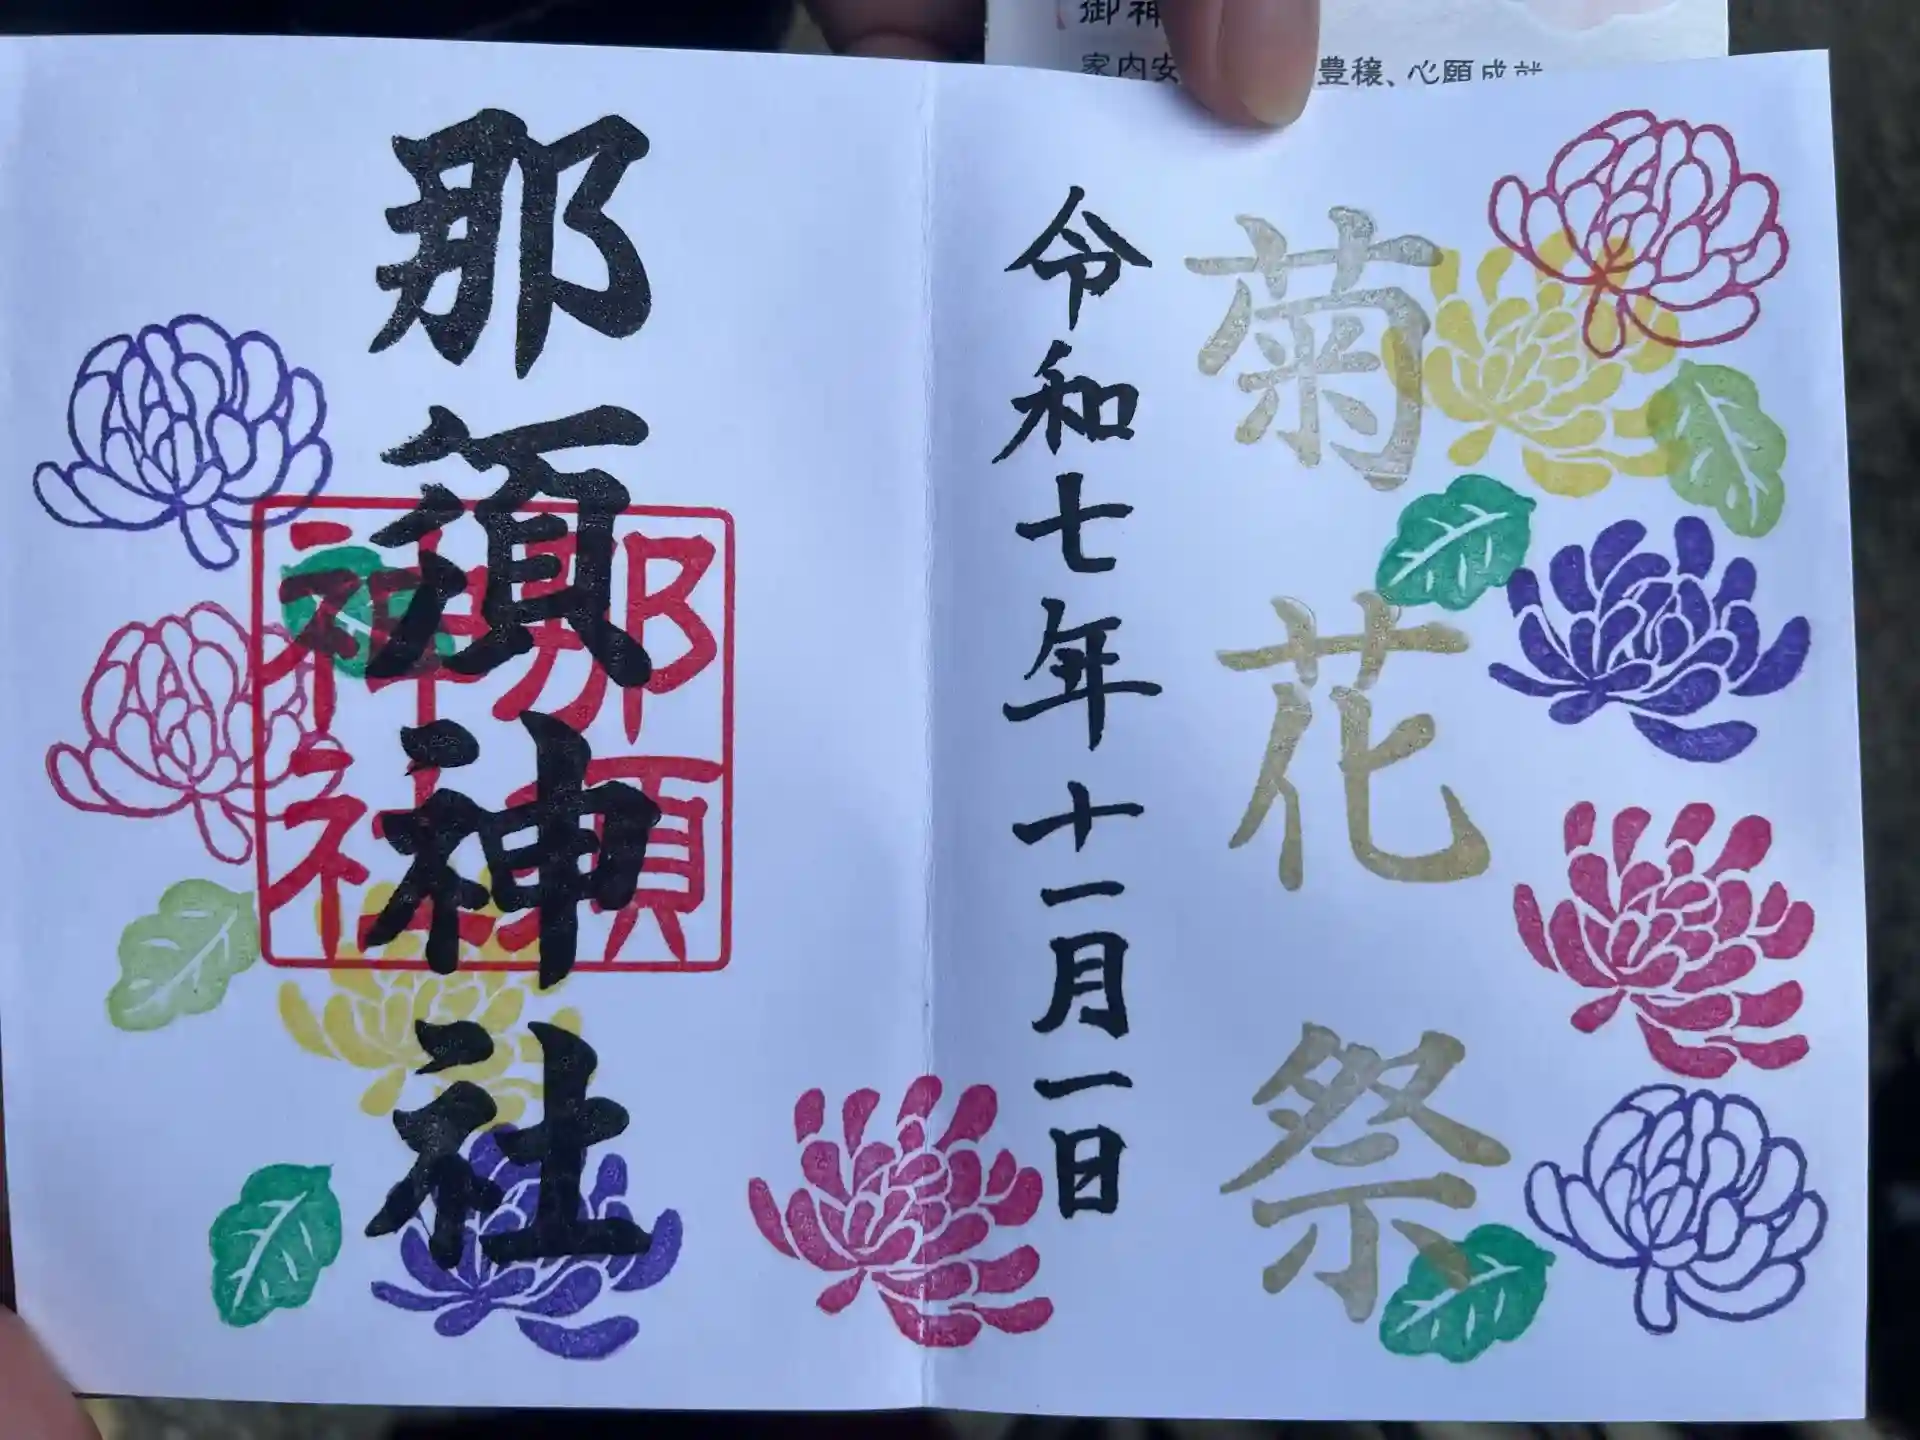 家内安
豊穣、心願成就
菊花祭
令和七年十一月一日
那須神社
那須
神社